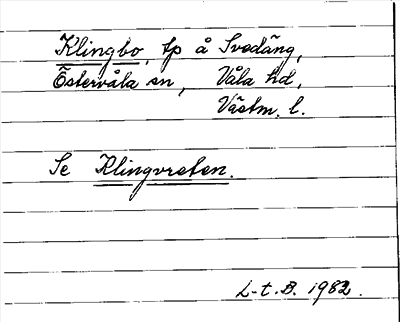 Klingbo, tp å Svedäng,
Östervåla sn, Våla hd,
Västm. l.
Se Klingvreten.
L-t. B. 1982.